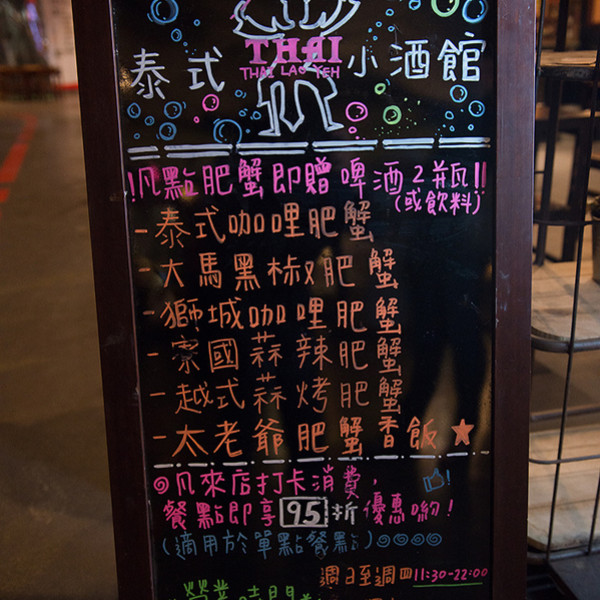 泰式 THAI 小酒館
THAI LAO YEH
!凡點肥蟹即贈啤酒2瓶!!
(或飲料)
-泰式咖哩肥蟹
-大馬黑椒肥蟹
-獅城咖哩肥蟹
-寮國蒜辣肥蟹
-越式蒜烤肥蟹
-太老爺肥蟹香飯★
◎凡來店打卡消費,
餐點即享95折優惠喲!
(適用於單點餐點)
週日至週四11:30-22:00
營業時間